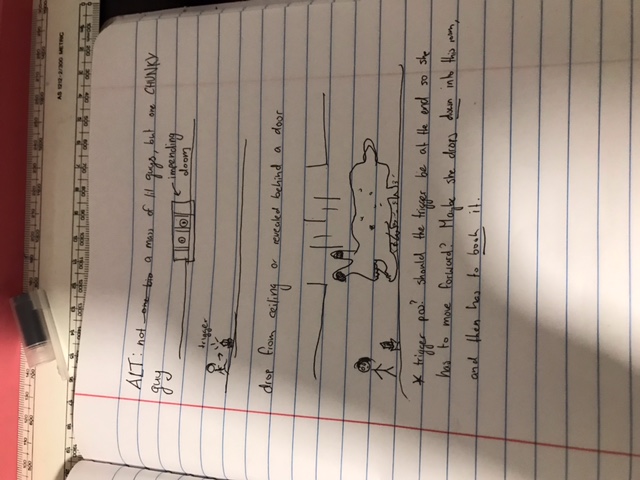 ALT: not one big a mass of lil guys, but one CHUNKY
guy
impending
doom
trigger
drop from ceiling or revealed behind a door
* trigger pos? should the trigger be at the end so she
has to move forward? Maybe she drops down into this room,
and then has to book it.
AS 1212-2/300 METRIC